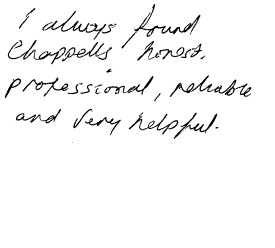 I always found
Chappells honest,
professional, reliable
and very helpful.